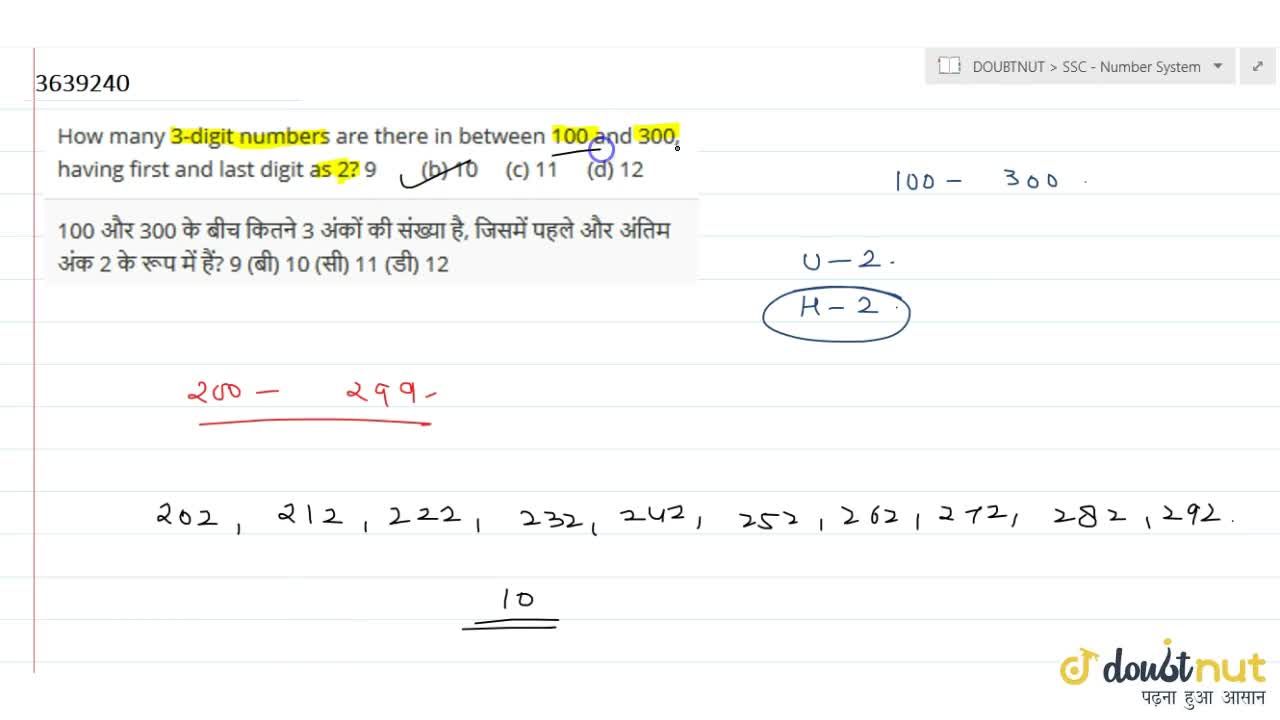 3639240
DOUBTNUT > SSC - Number System
How many 3-digit numbers are there in between 100 and 300,
having first and last digit as 2? 9 (b) 10 (c) 11 (d) 12
100 और 300 के बीच कितने 3 अंकों की संख्या है, जिसमें पहले और अंतिम
अंक 2 के रूप में हैं? 9 (बी) 10 (सी) 11 (डी) 12
100 - 300 .
U - 2 .
H - 2 .
200 - 299 -
202 , 212 , 222 , 232 , 242 , 252 , 262 , 272 , 282 , 292 .
10
doubtnut
पढ़ना हुआ आसान